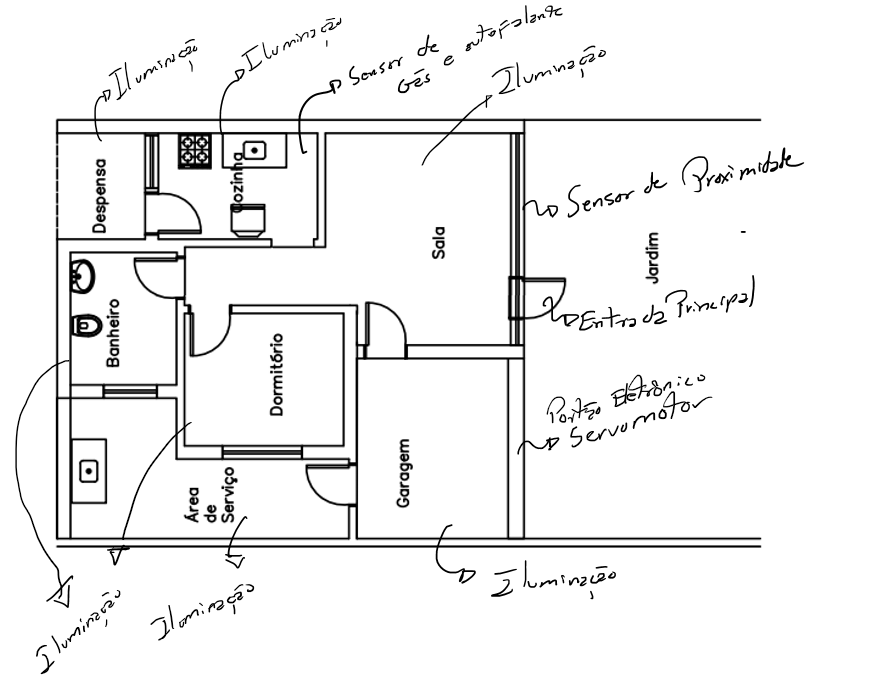 Iluminação
Iluminação
Sensor de
Gás e autofalante
Iluminação
Despensa
Cozinha
Sala
Jardim
Sensor de Proximidade
Entrada Principal
Banheiro
Dormitório
Portão Eletrônico
Servomotor
Garagem
Área
de
Serviço
Iluminação
Iluminação
Iluminação